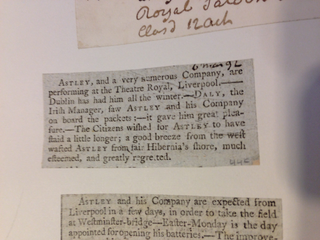 Royal Saloon
Clos'd 12 Ach
6 Mar 92
ASTLEY, and a very numerous Company, are
performing at the Theatre Royal, Liverpool.——
Dublin has had him all the winter.—DALY, the
Irish Manager, saw ASTLEY and his Company
on board the packets;—it gave him great plea-
sure.—The Citizens wished for ASTLEY to have
staid a little longer; a good breeze from the west
wafted ASTLEY from fair Hibernia's shore, much
esteemed, and greatly regretted.
ASTLEY and his Company are expected from
Liverpool in a few days, in order to take the field
at Westminster-bridge—Easter-Monday is the day
appointed for opening his batteries.—The improve-